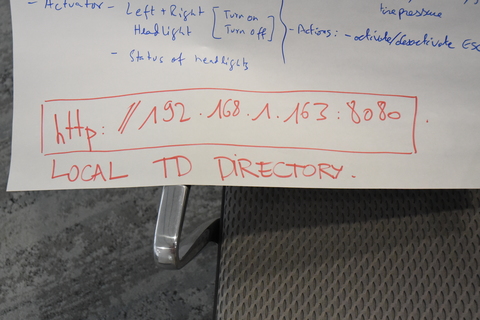 - Actuator - Left + Right [ Turn on
Headlight Turn off ]
- Status of headlights
tire pressure
- Actions: - activate/deactivate ESC
http://192.168.1.163:8080
LOCAL TD DIRECTORY.